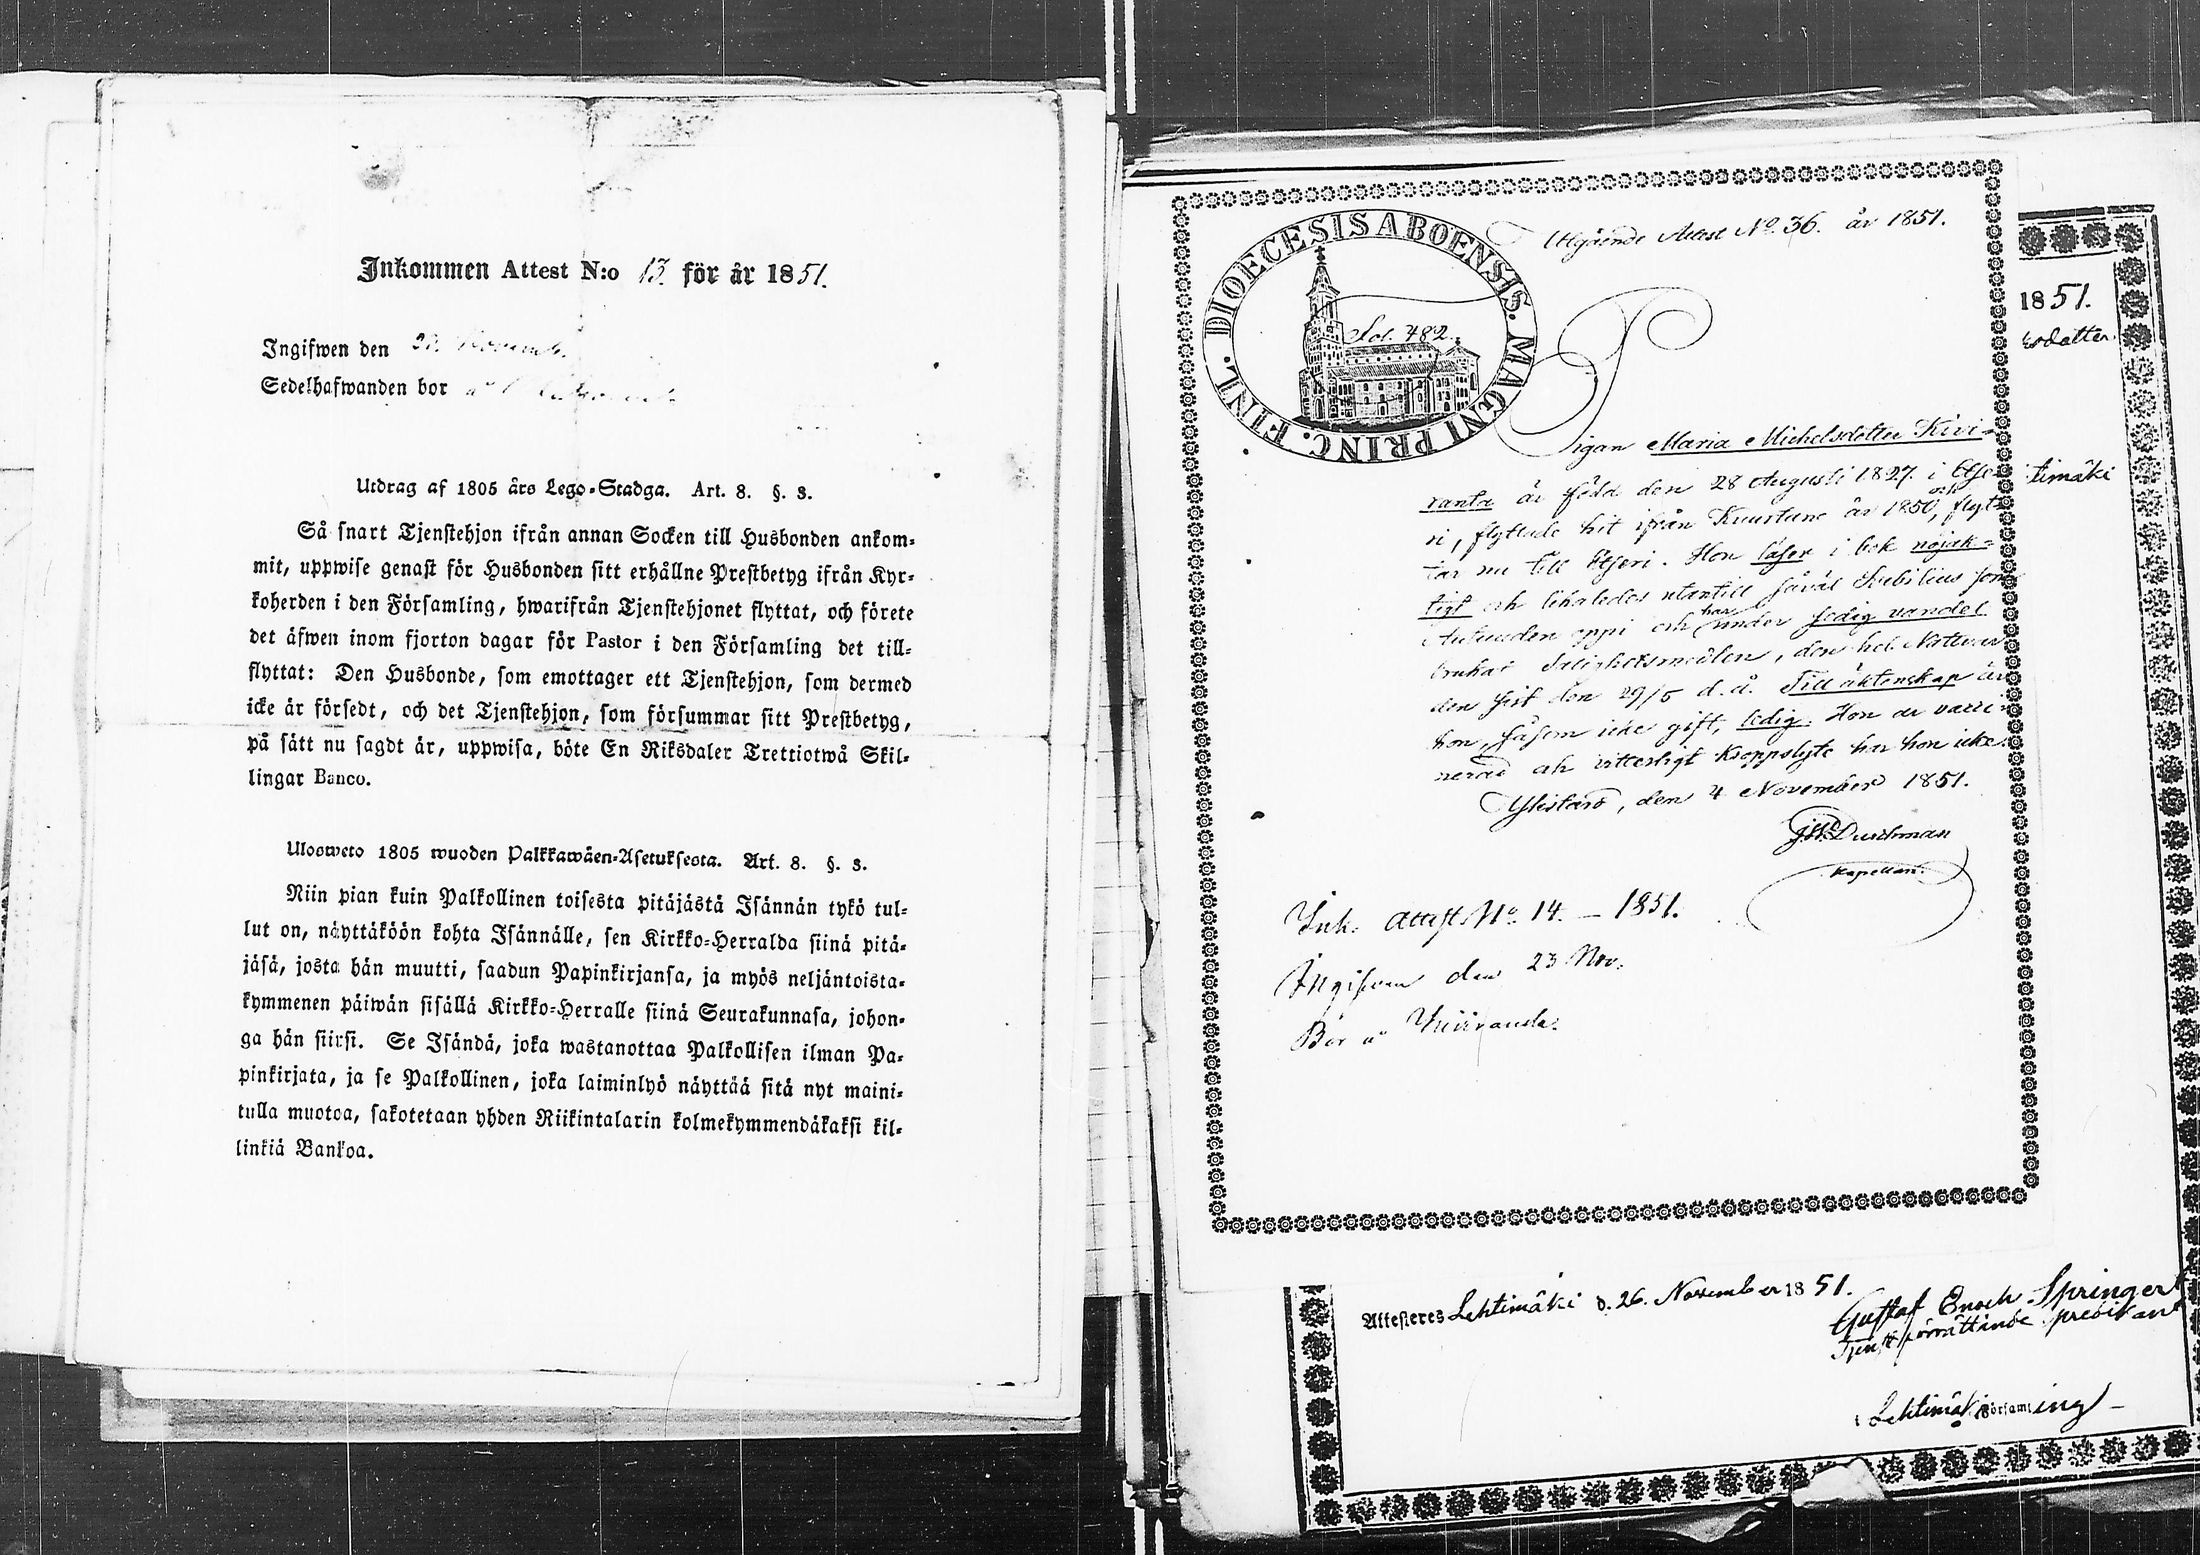 Inkommen Attest N:o 13. för år 1851.
Ingifwen den
Sedelhafwanden bor
Utdrag af 1805 års Lego-Stadga. Art. 8. §. 3.
Så snart Tjenstehjon ifrån annan Socken till Husbonden ankom-
mit, uppwise genast för Husbonden sitt erhållne Prestbetyg ifrån Kyr-
koherden i den Församling, hwarifrån Tjenstehjonet flyttat, och förete
det äfwen inom fjorton dagar för Pastor i den Församling det till-
flyttat: Den Husbonde, som emottager ett Tjenstehjon, som dermed
icke är försedt, och det Tjenstehjon, som försummar sitt Prestbetyg,
på sätt nu sagdt är, uppwisa, böte En Riksdaler Trettiotwå Skil-
lingar Banco.
Ulosweto 1805 wuoden Palkkawäen-Asetuksesta. Art. 8. §. 3.
Niin pian kuin Palkollinen toisesta pitäjästä Isännän tykö tul-
lut on, näyttäköön kohta Isännälle, sen Kirkko-Herralda siinä pitä-
jäsä, josta hän muutti, saadun Papinkirjansa, ja myös neljäntoista-
kymmenen päiwän sisällä Kirkko-Herralle siinä Seurakunnasa, johon-
ga hän siirsi. Se Isändä, joka wastanottaa Palkollisen ilman Pa-
pinkirjata, ja se Palkollinen, joka laiminlyö näyttää sitä nyt maini-
tulla muotoa, sakotetaan yhden Riikintalarin kolmekymmendäkaksi kil-
linkiä Bankoa.
Utgående Attest No. 36. år 1851.
DIOECESIS ABOENSIS. MAGNI PRINC. FINL.
Fol. 482.
Pigan Maria Michelsdotter Kivi-
ranta är född den 28 Augusti 1827. i Etse-
ri, flyttade hit ifrån Kuortane år 1850, och flyt-
tar nu till Etseri. Hon läser i bok nöjak-
tigt och likaledes utantill såväl som
och har under fredig vandel
brukat Salighetsmedlen, den hel. Nattvar-
den sist den 29/5 d. å. Till äktenskap är
hon, såsom icke gift, ledig. Hon är vacci-
nerad och vitterligt kroppslyte har hon icke.
Ylistaro, den 4 November 1851.
Kapellan.
Ink. Attest No. 14. – 1851.
Ingifven den 23 Nov.
Bor å
1851.
sdotter
timäki
Attesteres Lehtimäki d. 26. November 1851.
Gustaf Enoch Springert
Tjenstförrättande predikant
i Lehtimäki Församling –